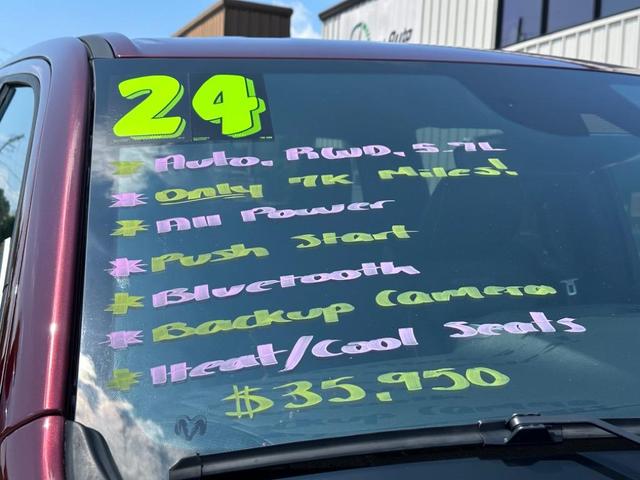 Auto
24
Auto, RWD, 5.7L
Only 7K Miles!
All Power
Push Start
Bluetooth
Backup Camera
Heat/Cool Seats
$35,950